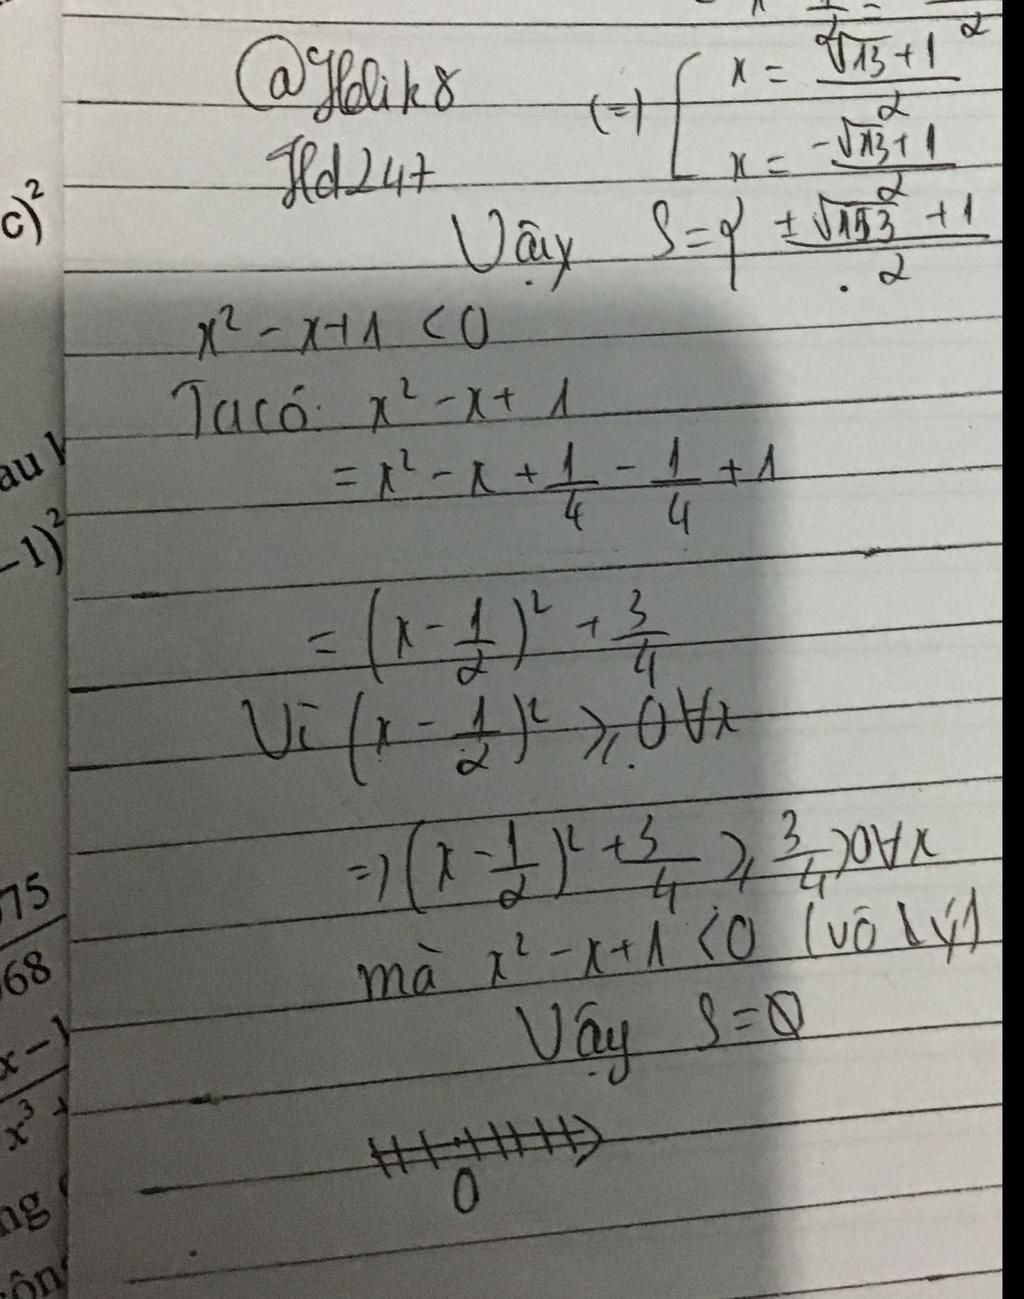 @Holik8
Hd247
(=) [ x = (√13 + 1)/2
x = (-√13 + 1)/2
Vậy S = { (±√13 + 1)/2
x² - x + 1 < 0
Ta có: x² - x + 1
= x² - x + 1/4 - 1/4 + 1
= (x - 1/2)² + 3/4
Vì (x - 1/2)² ≥ 0 ∀x
=) (x - 1/2)² + 3/4 ≥ 3/4 > 0 ∀x
mà x² - x + 1 < 0 (vô lý)
Vậy S = ∅
0
c)²
au
-1)²
75
68
x - 1
x³ +
ng